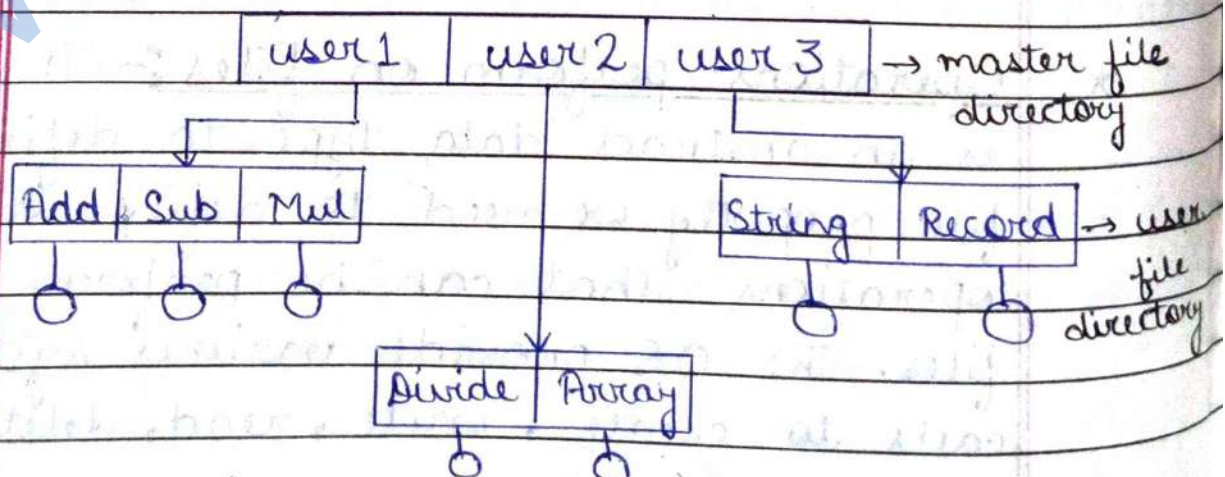 user 1 user 2 user 3 → master file
directory
Add Sub Mul String Record → user
file
directory
Divide Array